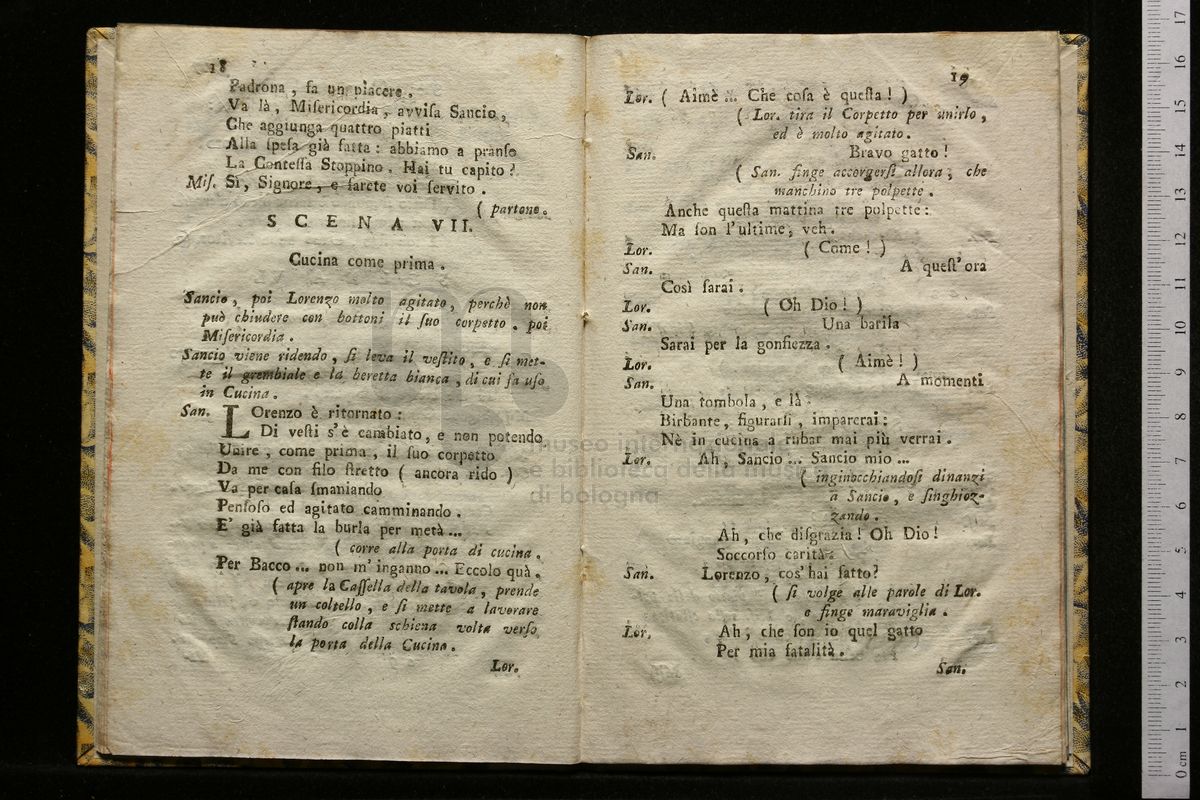 18
Padrona, fa un piacere.
Va là, Miſericordia, avviſa Sancio,
Che aggiunga quattro piatti
Alla ſpeſa già fatta: abbiamo a pranſo
La Conteſſa Stoppino. Hai tu capito?
Miſ. Sì, Signore, e ſarete voi ſervito.
( partono.
SCENA VII.
Cucina come prima.
Sancio, poi Lorenzo molto agitato, perchè non
può chiudere con bottoni il ſuo corpetto. poi
Miſericordia.
Sancio viene ridendo, ſi leva il veſtito, e ſi met-
te il grembiale e la beretta bianca, di cui fa uſo
in Cucina.
San. LOrenzo è ritornato:
Di veſti s'è cambiato, e non potendo
Unire, come prima, il ſuo corpetto
Da me con filo ſtretto ( ancora rido )
Va per caſa ſmaniando
Penſoſo ed agitato camminando.
E' già fatta la burla per metà ...
( corre alla porta di cucina.
Per Bacco ... non m'inganno ... Eccolo quà.
( apre la Caſſella della tavola, prende
un coltello, e ſi mette a lavorare
ſtando colla schiena volta verſo
la porta della Cucina.
Lor.
19
Lor. ( Aimè ... Che coſa è queſta! )
( Lor. tira il Corpetto per unirlo,
ed è molto agitato.
San. Bravo gatto!
( San. finge accorgerſi allora, che
manchino tre polpette.
Anche queſta mattina tre polpette:
Ma ſon l'ultime, veh.
Lor. ( Come! )
San. A queſt'ora
Così ſarai.
Lor. ( Oh Dio! )
San. Una barila
Sarai per la gonfiezza.
Lor. ( Aimè! )
San. A momenti
Una tombola, e là.
Birbante, figurarſi, imparerai:
Nè in cucina a rubar mai più verrai.
Lor. Ah, Sancio ... Sancio mio ...
( inginocchiandoſi dinanzi
a Sancio, e ſinghioz-
zando.
Ah, che diſgrazia! Oh Dio!
Soccorſo carità.
San. Lorenzo, cos' hai fatto?
( ſi volge alle parole di Lor.
e finge maraviglia.
Lor. Ah, che ſon io quel gatto
Per mia fatalità.
San.
museo internazionale
e biblioteca della musica
di bologna
0 cm 1 2 3 4 5 6 7 8 9 10 11 12 13 14 15 16 17